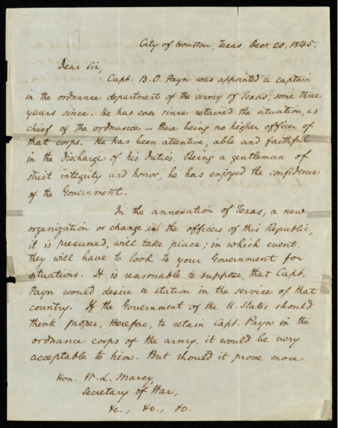 City of Houston, Texas, Dec. 20, 1845.
Dear Sir,
Capt. B. O. Payn was appointed a captain
in the ordnance department of the army of Texas, some three
years since. he has ever since retained the situation, as
chief of the ordnance – there being no higher officer of
that corps. He has been attentive, able and faithful
in the discharge of his duties. Being a gentleman of
strict integrity and honor, he has enjoyed the confidence
of the Government.
In the annexation of Texas, a new
organization or change in the offices of this Republic,
it is presumed, will take place; in which event,
they will have to look to your Government for
situations. It is reasonable to suppose, that Capt.
Payn would desire a station in the service of that
country. If the Government of the U. States should
think proper, therefore, to retain Capt. Payn in the
ordnance corps of the army, it would be very
acceptable to him. But should it prove more
Hon. W. L. Marcy,
Secretary of War,
&c., &c., &c.